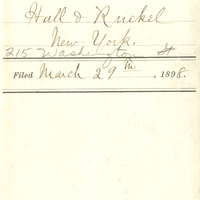 Hall & Ruckel
New York.
215 Washington St
Filed March 29th, 1898.